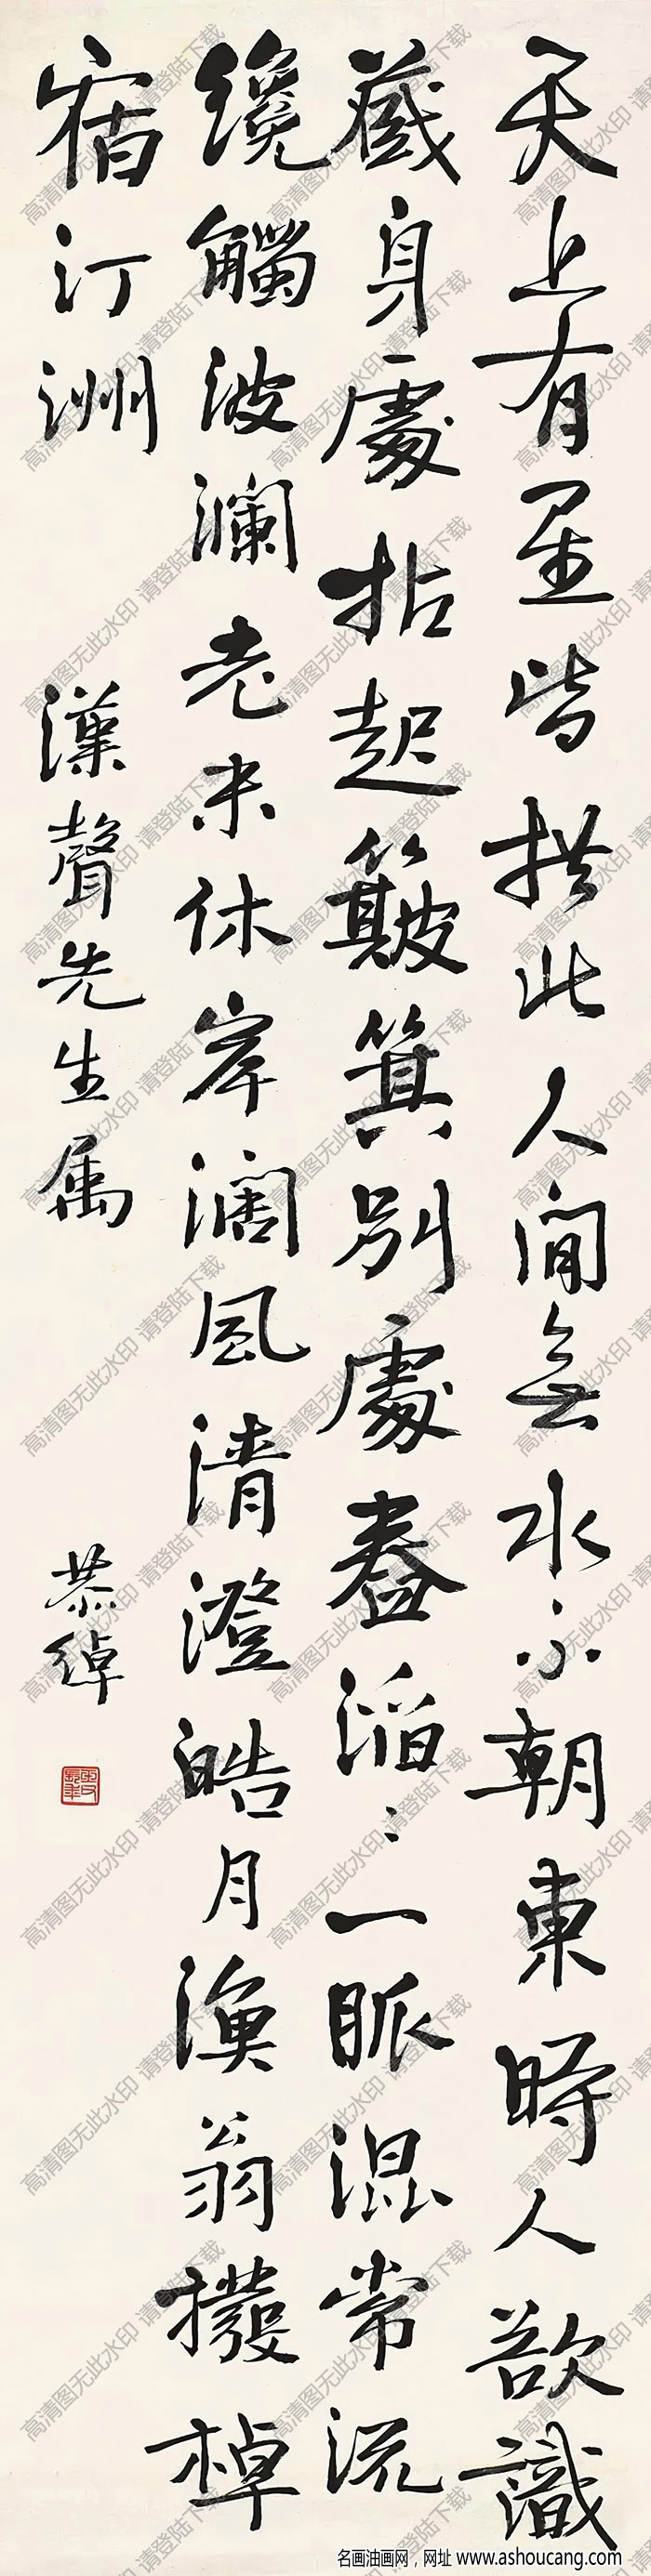 天上有星皆拱北人間無水不朝東時人欲識
藏身處拈起簸箕別處舂滔〻一脈混常流
纔觸波瀾老未休岸濶風清澄皓月漁翁撥棹
宿汀洲
漢聲先生属
恭綽
名画油画网，网址 www.ashoucang.com
高清图无此水印 请登陆下载